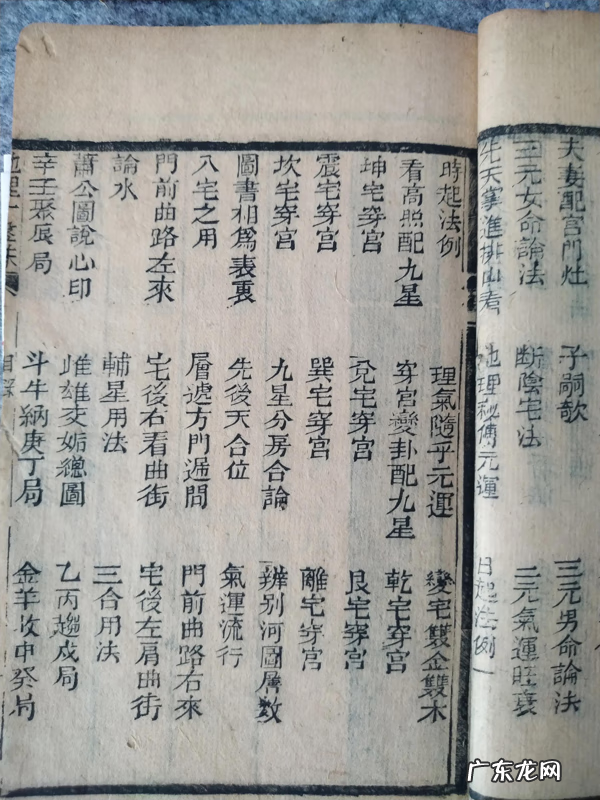 夫妻配宮門灶 子嗣歌 三元男命論法
三元女命論法 断陰宅法 三元氣運旺衰
先天掌進排山者 地理秘傳元運 日起法例
時起法例 理氣隨乎元運 變宅雙金雙木
看高照配九星 穿宮變卦配九星 乾宅穿宮
坤宅穿宮 兌宅穿宮 艮宅穿宮
震宅穿宮 巽宅穿宮 離宅穿宮
坎宅穿宮 九星分房合論 辨别河圖層數
圖書相為表裏 先後天合位 氣運流行
八宅之用 層遞方門遁問 門前曲路右來
門前曲路左來 宅後右看曲街 宅後左肩曲街
論水 輔星用法 三合用法
蕭公圖說心印 雌雄交媾總圖 乙丙趨戍局
辛壬聚辰局 斗牛納庚丁局 金羊收申癸局
目錄
广东龙网